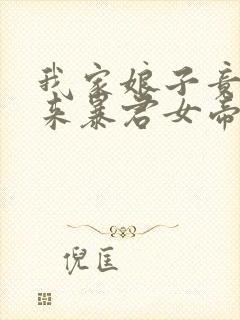 我家娘子竟
来暴君女帝
倪匡